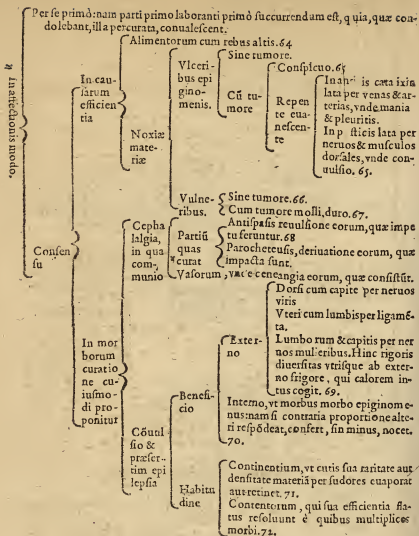 Per se primò: nam parti primo laboranti primò succurrendum est, quia, quæ con
dolebant, illa percurata, conualescent.
& in affectionis modo.
Consen
su
In cau-
sarum
efficien
tia
Alimentorum cum rebus altis. 64
Noxiæ
mate-
riæ
Vlceri-
bus epi
ginome-
menis.
Sine tumore.
Cũ tu-
more
Conspicuo. 65
Repen
te eua-
nescen-
te
In is cata ixin
lata per venas & ar-
terias, vnde mania
& pleuritis.
In sticis lata per
neruos & musculos
dorsales, vnde con-
uulsio. 65.
Vulne-
ribus.
Sine tumore. 66.
Cum tumore molli, duro. 67.
In mor
borum
curatio
ne cu-
iusmo-
di pro-
ponitur
Cepha
lalgia,
in qua
com-
munio
Partiũ
quas
curat
Antispasis reuulsione eorum, quæ impe
tu feruntur. 68
Parocheteusis, deriuatione eorum, quæ
impacta sunt.
Vasorum, eorum, quæ consistũt.
Cõuul
sio &
præser-
tim epi
lepsia
Benefi-
cio
Exter-
no
Dorsi cum capite per neruos
viris
Vteri cum lumbis per ligamẽ-
ta.
Lumborum & capitis per ner
uos mulieribus. Hinc rigoris
diuersitas vtrisque ab exter-
no frigore, qui calorem in-
tus cogit. 69.
Interno, vt morbus morbo epiginome
nus: nam si contraria proportione alte-
ri respõdeat, confert, sin minus, nocet.
70.
Habitu
dine
Continentium, vt cutis sua raritate aut
densitate materiã per sudores euaporat
aut retinet. 71.
Contentorum, qui sua efficientia fla-
tus resoluunt è quibus multiplices
morbi. 72.